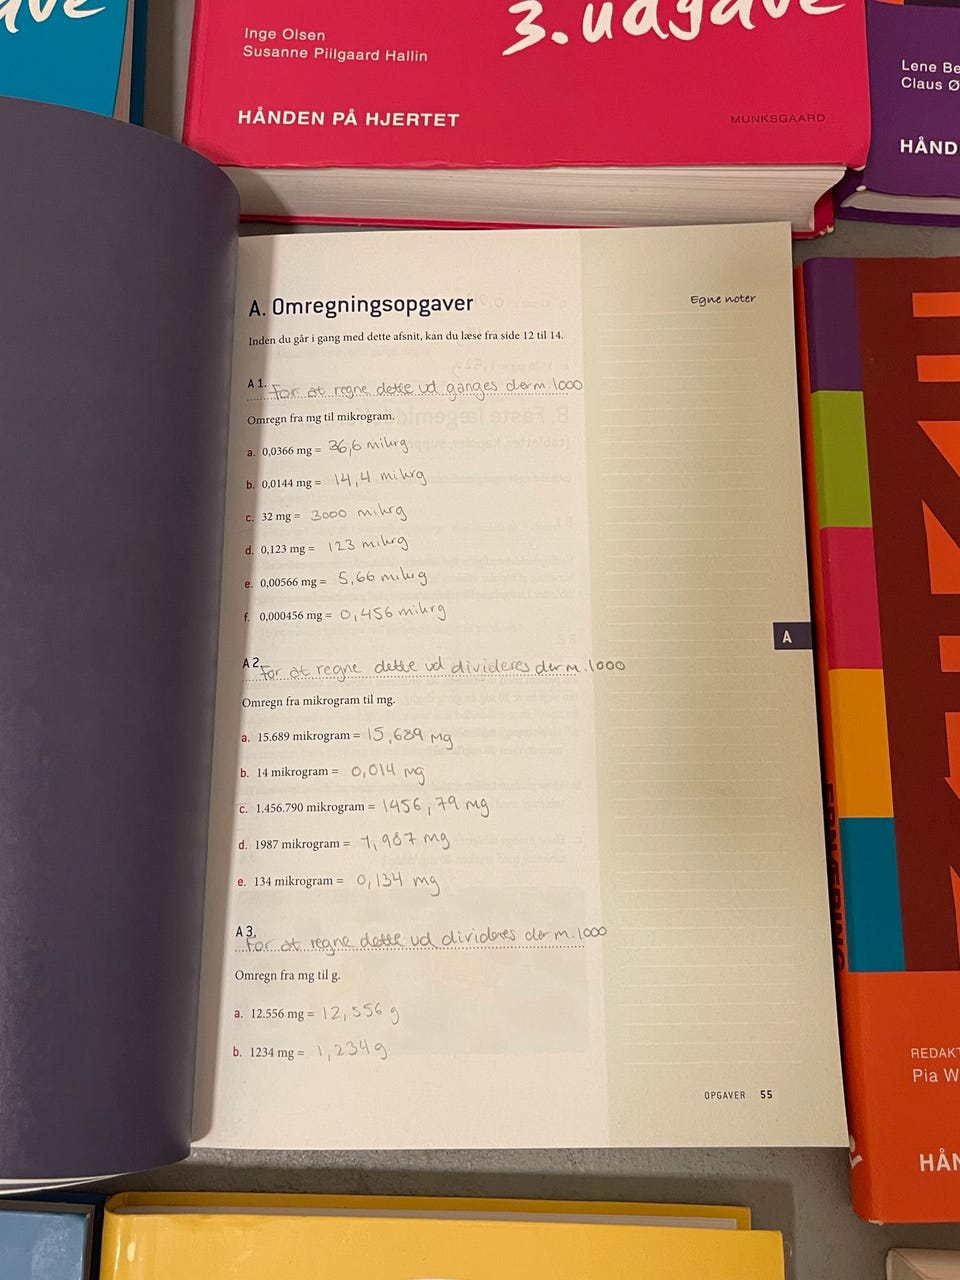 3. udgave
Inge Olsen
Susanne Piilgaard Hallin
HÅNDEN PÅ HJERTET
MUNKSGAARD
Lene Be
Claus Ø
HÅND
A. Omregningsopgaver
Egne noter
Inden du går i gang med dette afsnit, kan du læse fra side 12 til 14.
A 1. For at regne dette ud ganges der m. 1000
Omregn fra mg til mikrogram.
a. 0,0366 mg = 36,6 mikrg
b. 0,0144 mg = 14,4 mikrg
c. 32 mg = 3000 mikrg
d. 0,123 mg = 123 mikrg
e. 0,00566 mg = 5,66 mikrg
f. 0,000456 mg = 0,456 mikrg
A
A 2. For at regne dette ud divideres der m. 1000
Omregn fra mikrogram til mg.
a. 15.689 mikrogram = 15,689 mg
b. 14 mikrogram = 0,014 mg
c. 1.456.790 mikrogram = 1456,79 mg
d. 1987 mikrogram = 1,987 mg
e. 134 mikrogram = 0,134 mg
A 3. For at regne dette ud divideres der m. 1000
Omregn fra mg til g.
a. 12.556 mg = 12,556 g
b. 1234 mg = 1,234 g
OPGAVER 55
ERNÆRING
REDAKT
Pia W
HÅN